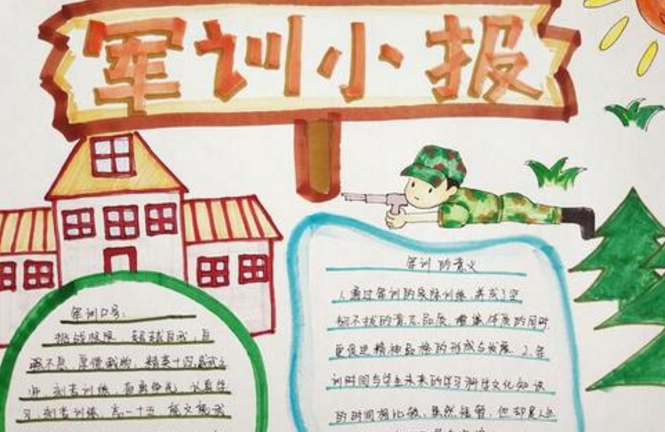 军训小报
军训口号:
挑战极限 超越自我,自
强不息,
师,刻苦训练,
习,刻苦训练,高一十五,能文能武
军训的意义
1.通过军训的实际训练,养成了坚
韧不拔的意志品质,增强体质的同时
更促进精神品格的形成与发展。2.军
训时间与学生未来的学习科学文化知识
的时间相比较,虽然短暂,但却是人生